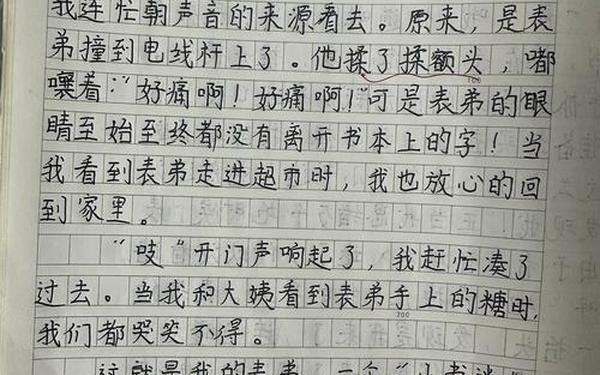 我连忙朝声音的来源看去。原来，是表
弟撞到电线杆上了。他揉了揉额头，嘟
囔着：“好痛啊！好痛啊！”可是表弟的眼
睛至始至终都没有离开书本上的字！当
我看到表弟走进超市时，我也放心的回
到家里。
“吱”开门声响起了，我赶忙凑了
过去。当我和大姨看到表弟手上的糖时，
我们都哭笑不得。
这就是我的表弟，一个“小书迷”